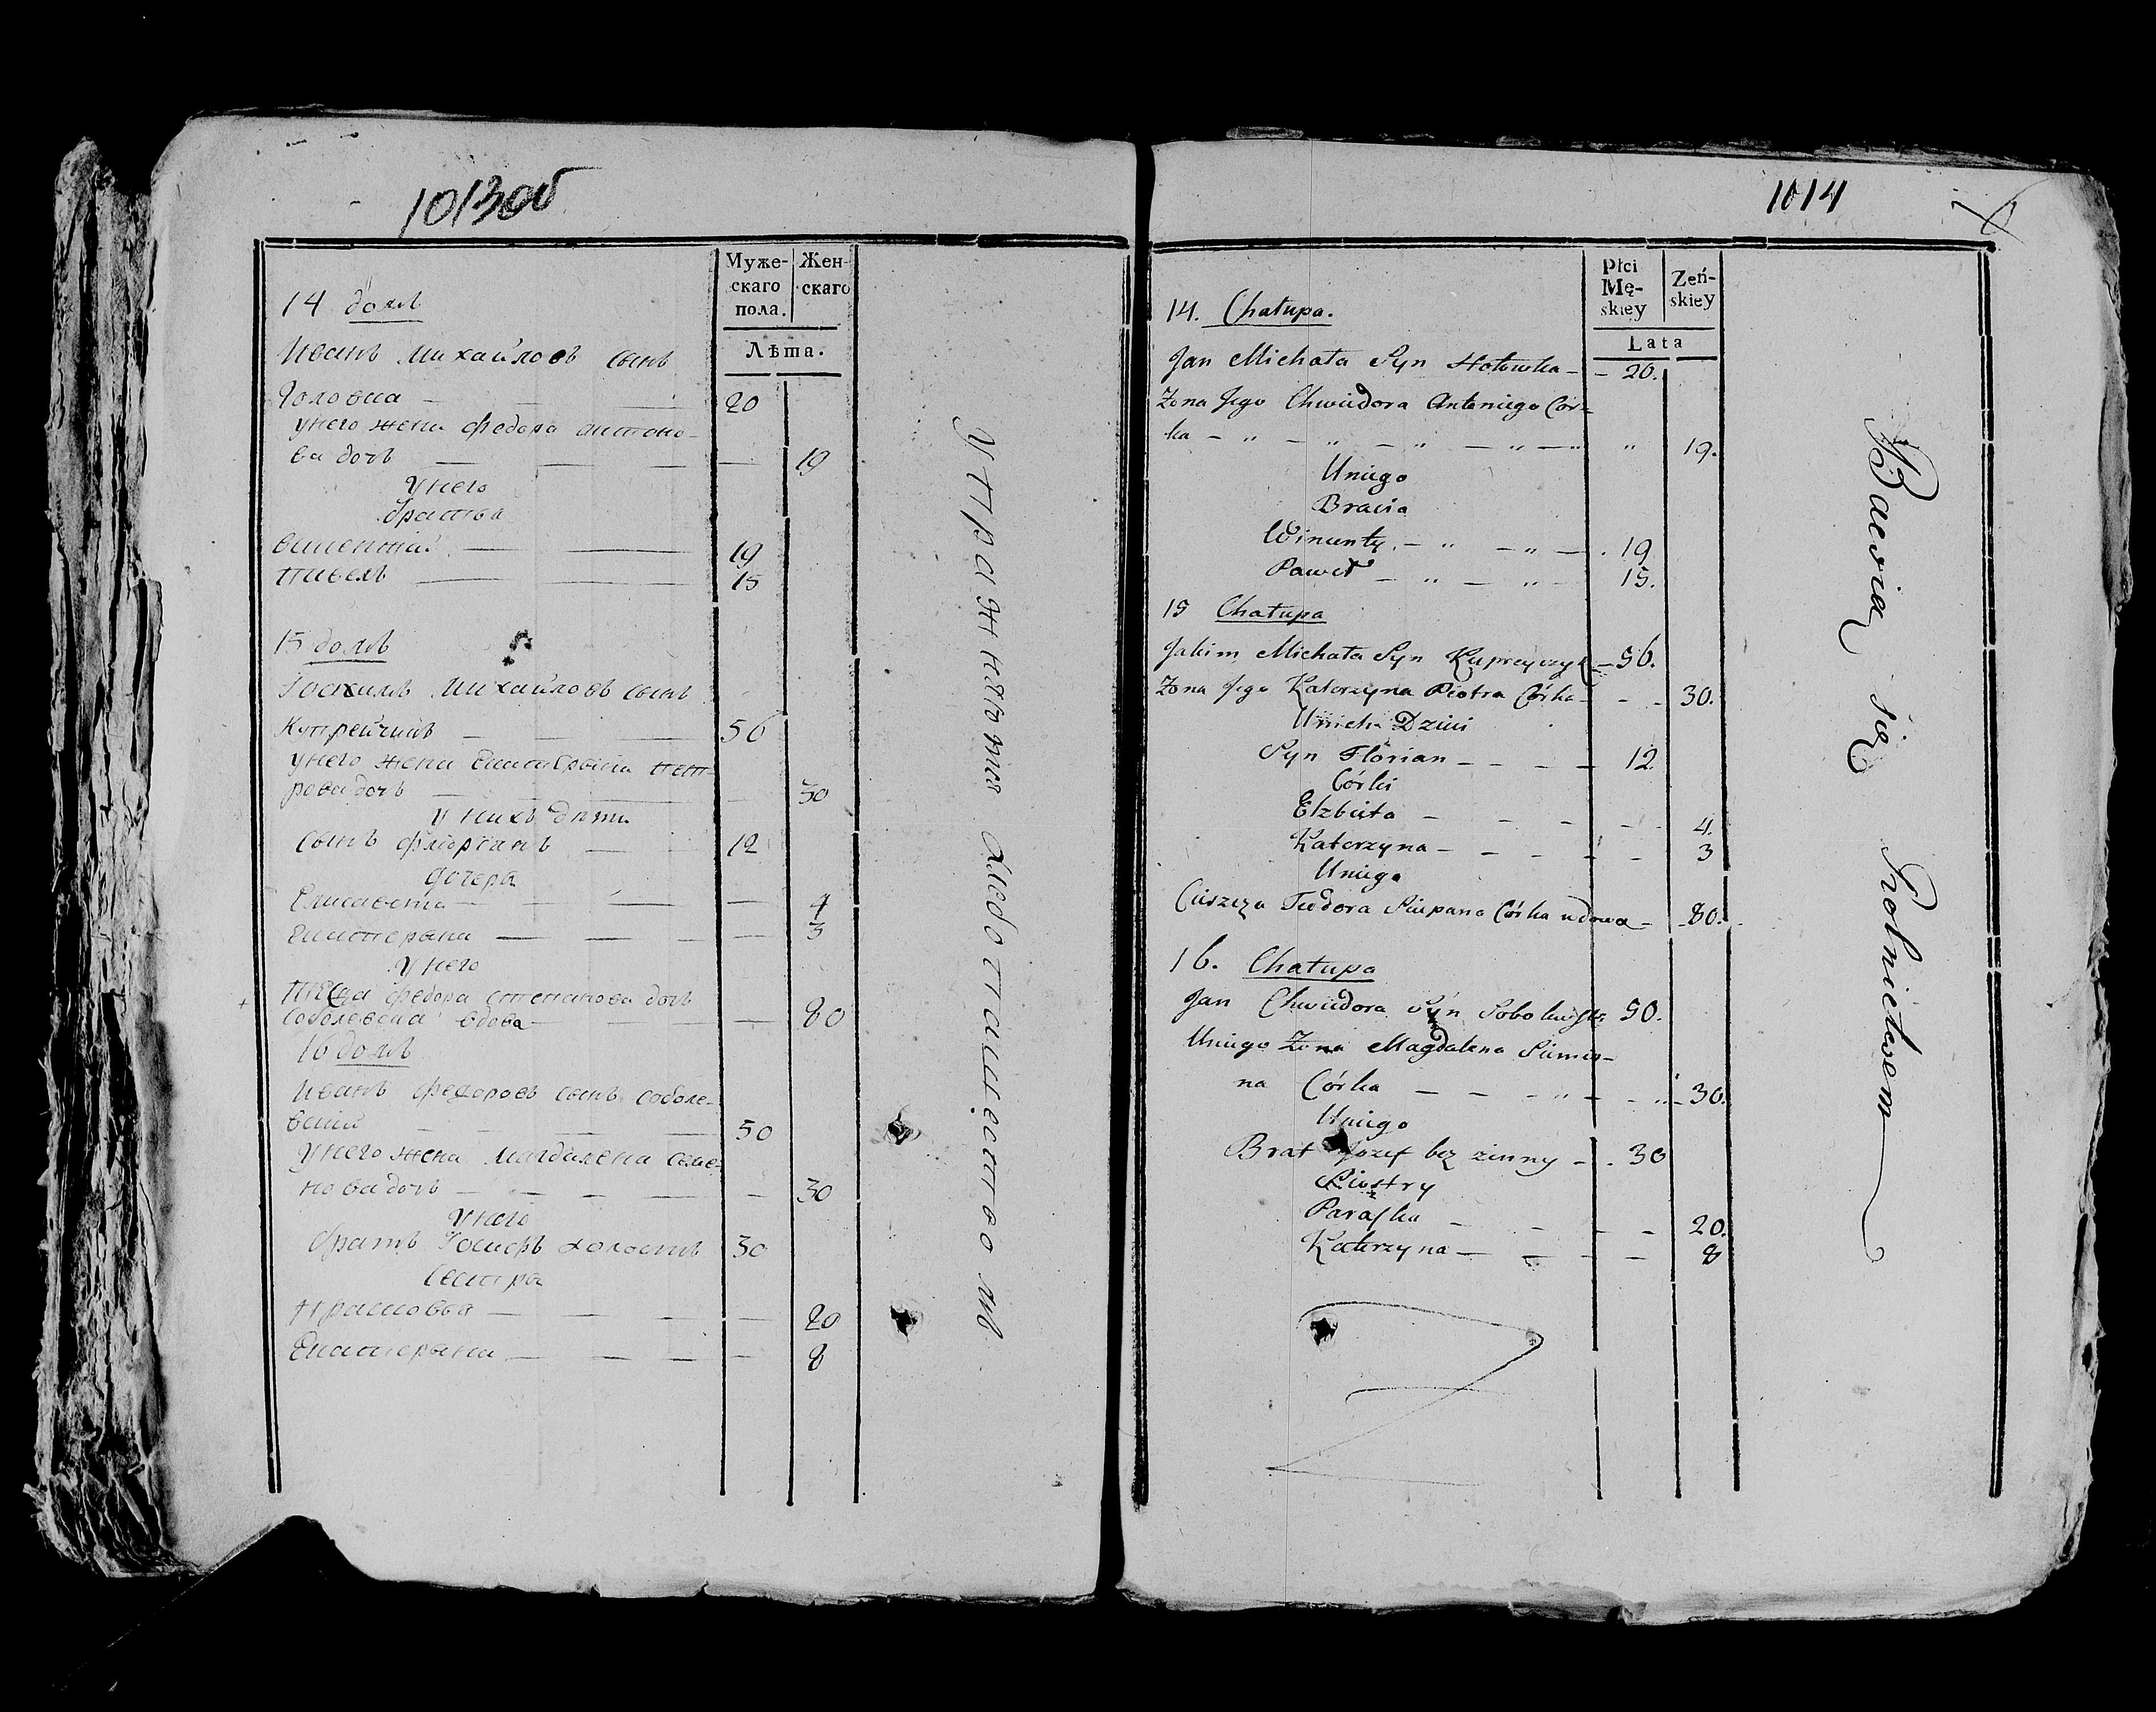 1013об
Муже-
скаго
пола.
Жен-
скаго
Лѣта.
14 домъ
Иванъ Михайловъ сынъ
Головка 20
у него жена Федора Антоно-
ва дочь 19
у него
братья
Викентий 19
Павелъ 15
15 домъ
Іоакимъ Михайловъ сынъ
Купрейчикъ 56
у него жена Екатерына Пет-
рова дочь 30
у нихъ дѣти
сынъ Флюріанъ 12
дочера
Елисавета 4
Екатерана 3
у него
теща Федора Степанова дочь
Соболевска вдова 80
16 домъ
Иванъ Федоровъ сынъ Соболе-
вский 50
у него жена Магдалена Семе-
нова дочь 30
у него
братъ Іосифъ холостъ 30
Сестра
Прасковья 20
Екатерына 8
Упражняются хлебопашеством
1014
Płci
Mę-
skiey
Zeń-
skiey
Lata
14. Chałupa.
Jan Michała Syn Hołowka 20.
Zona Jego Chwiedora Antoniego Cór-
ka 19.
U niego
Bracia
Winunty 19
Paweł 15.
15 Chałupa
Jakim Michała Syn Kupreyczyk 56.
Zona Jego Katerzyna Piotra Córka 30.
U nich Dzieci
Syn Florian 12
Córki
Elzbieta 4.
Katerzyna 3
U niego
Cieszcza Teodora Sciepana Córka udowa 80.
16. Chałupa
Jan Chwiedora Syn Sobolewski 50.
U niego Zona Magdalena Siemio-
na Córka 30.
U niego
Brat Jozef bez zinny 30
Siostry
Paraska 20.
Katerzyna 8
Bawią się Rolnictwem